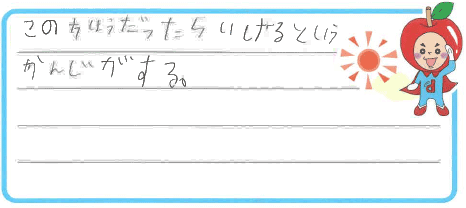 このちょうしだったらいけるという
かんじがする。